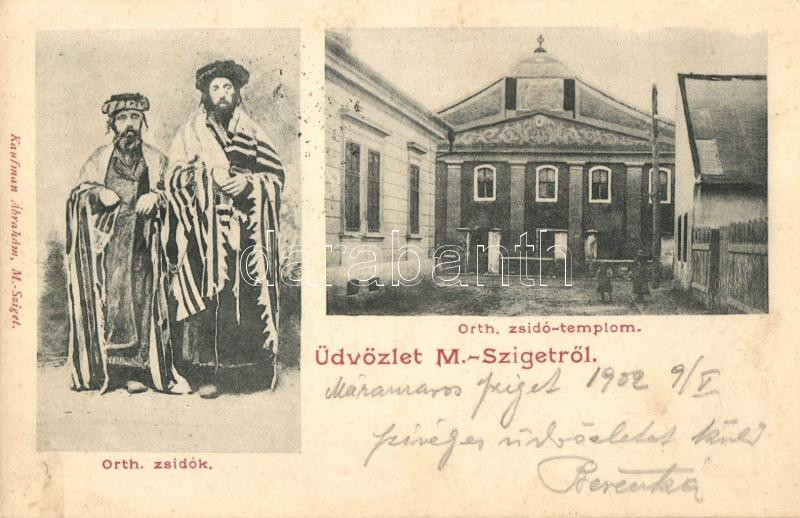 Kaufman Ábrahám, M.-Sziget.
Orth. zsidók.
Orth. zsidó-templom.
Üdvözlet M.-Szigetről.
Máramaros sziget 1902 9/V
szivéges üdvözletet küld
darabanth